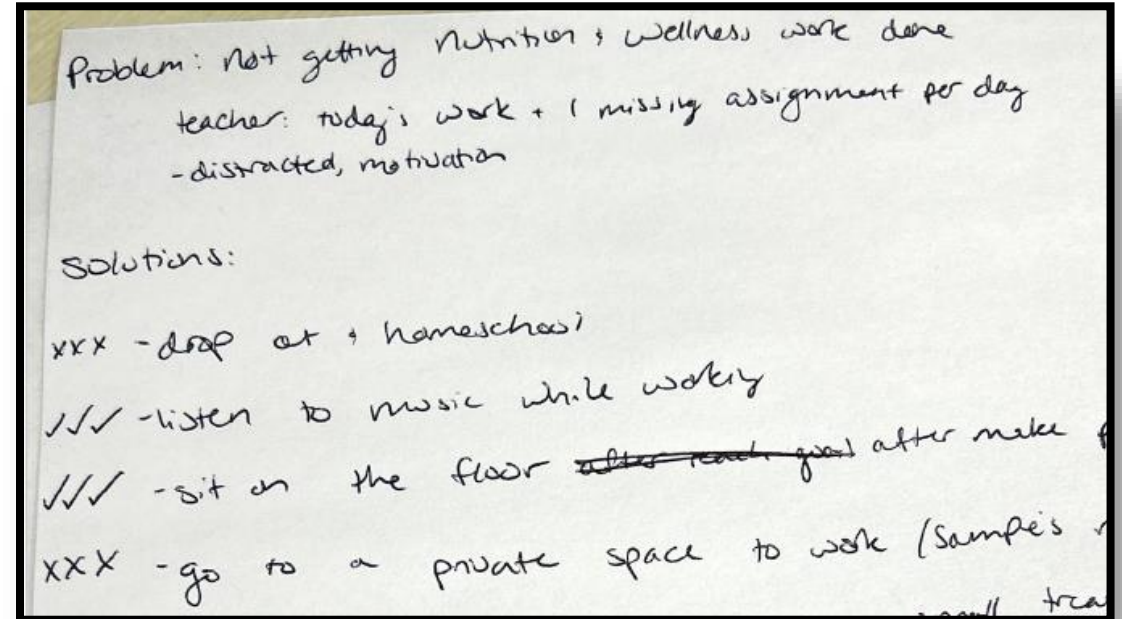 Problem: not getting nutrition & wellness work done
teacher: today's work + 1 missing assignment per day
- distracted, motivation
Solutions:
xxx - drop out & homeschool
✓✓✓ - listen to music while working
✓✓✓ - sit on the floor after reach goal after make
xxx - go to a private space to work (Sampe's
small